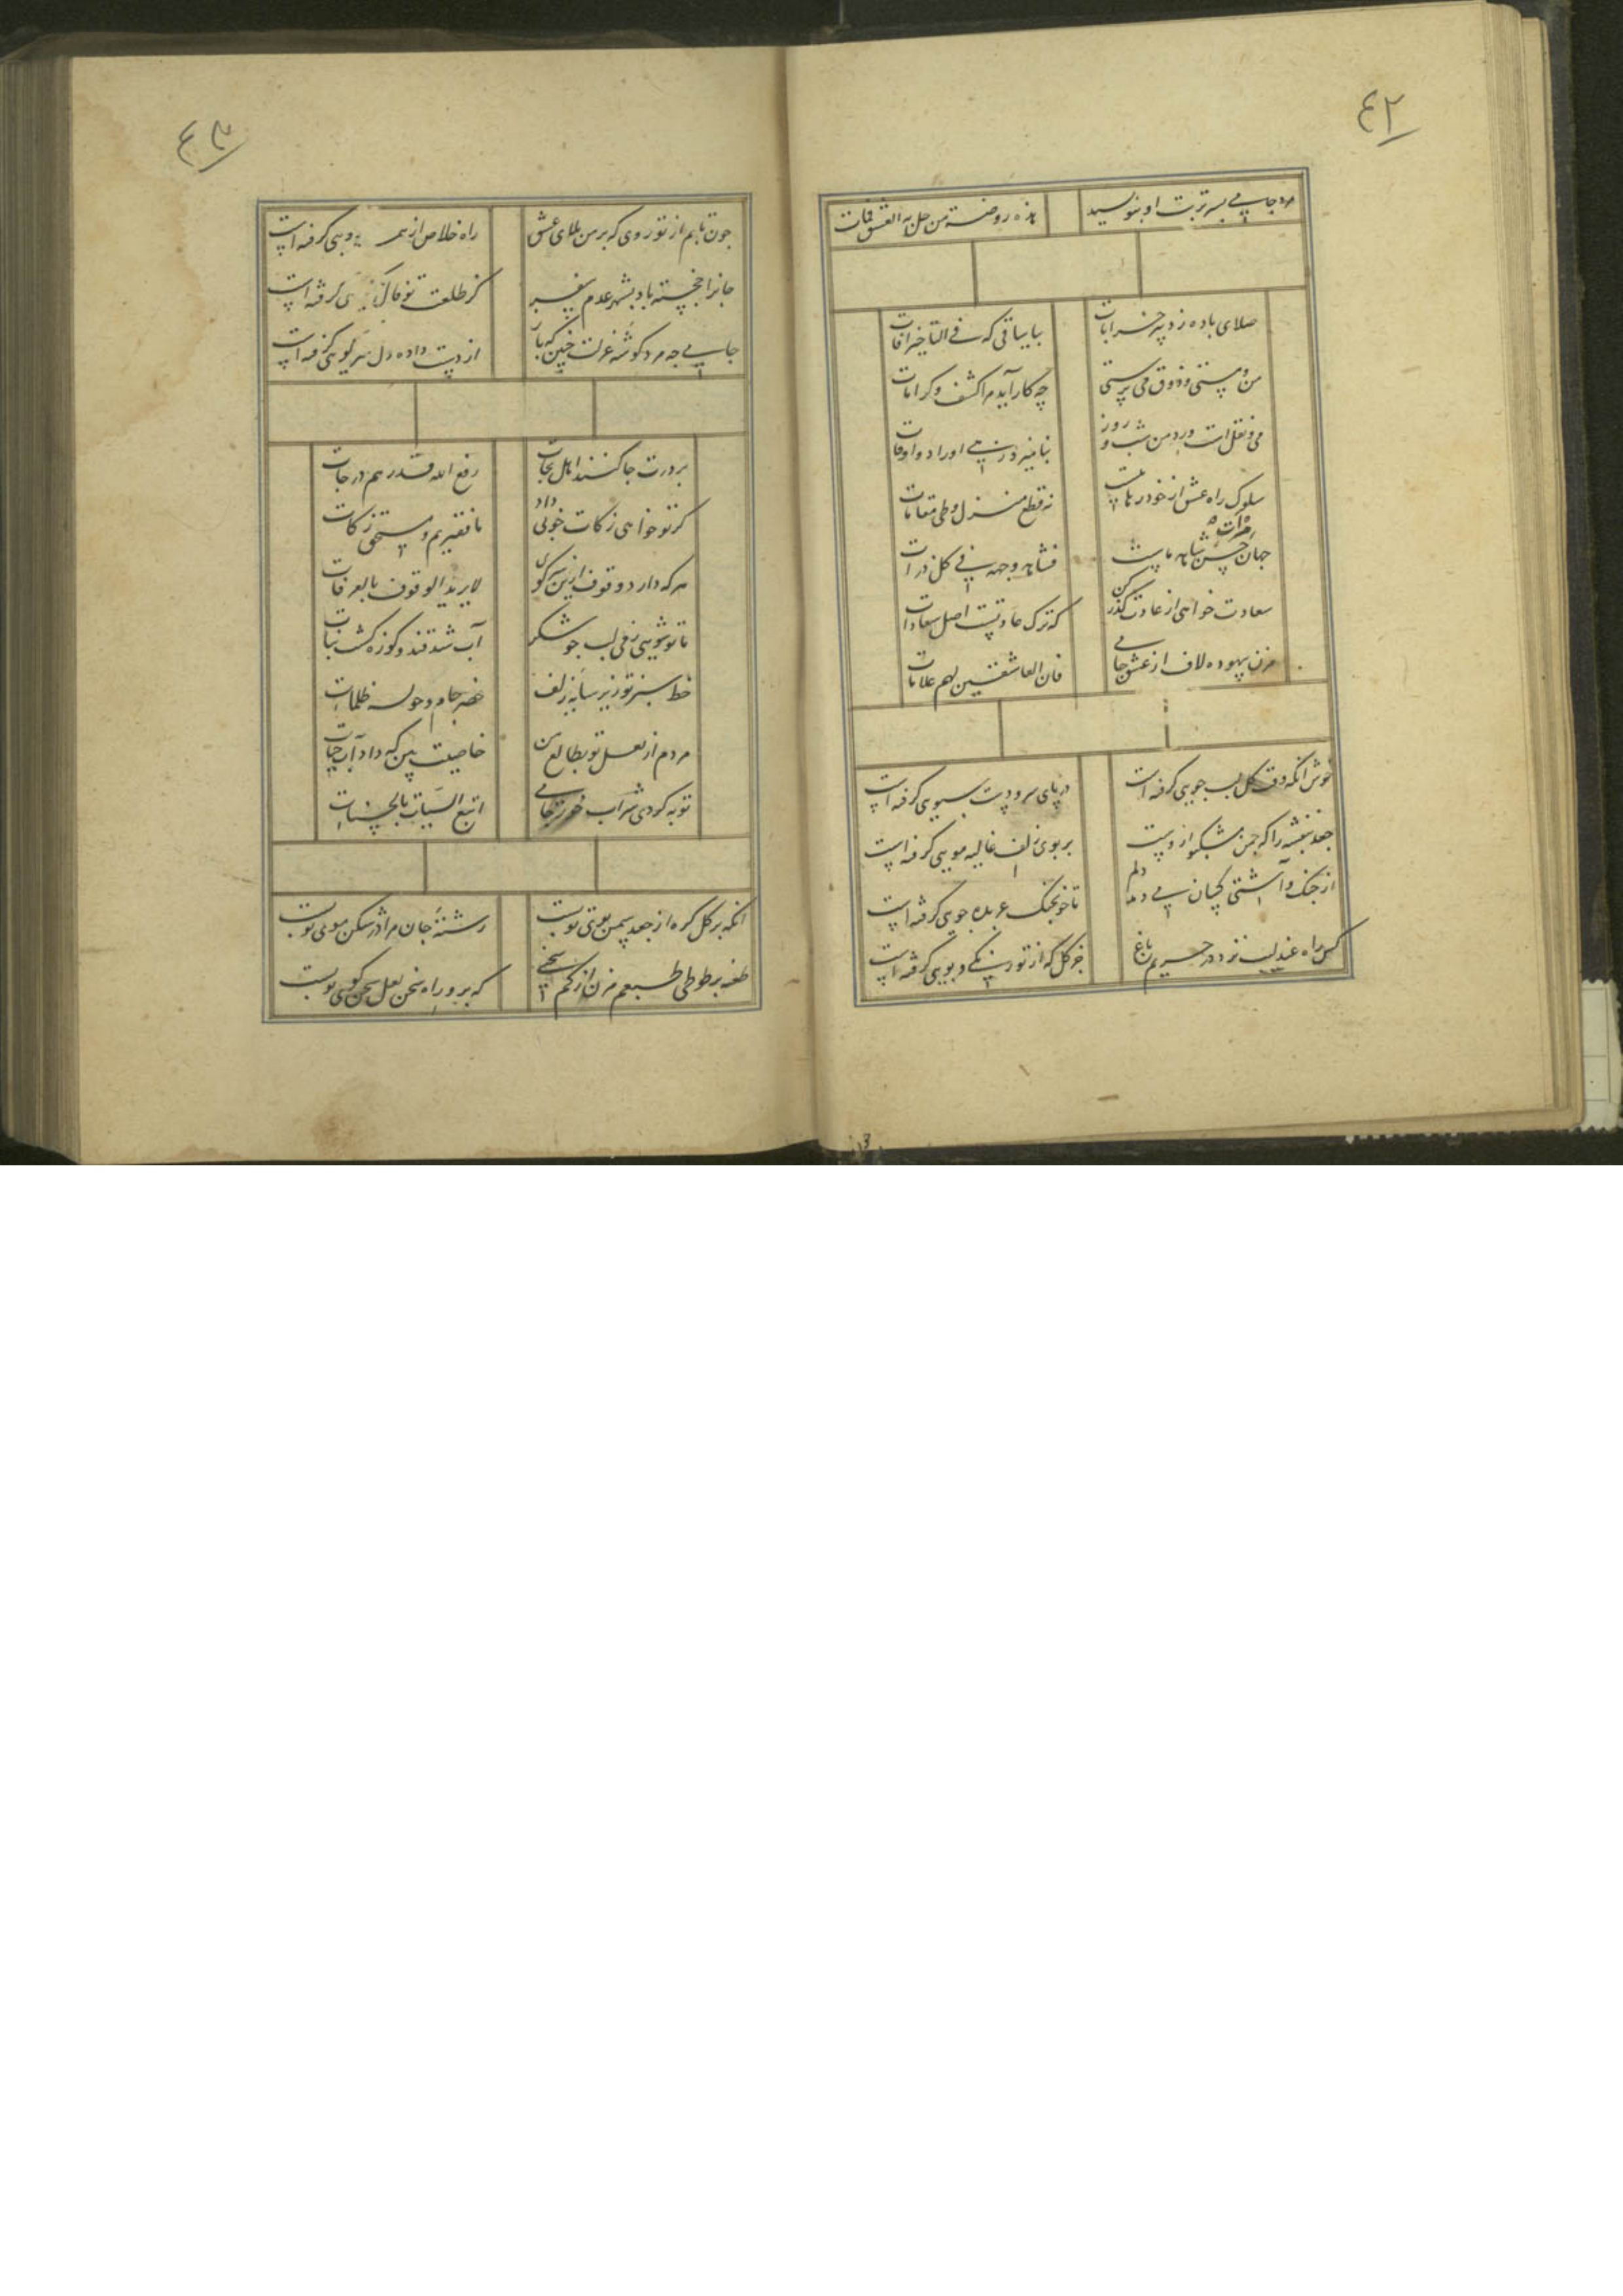 ۴۲
مرد جامی بسر تربت او بنویسید
هذه روضة من حل به العشق فمات
صلای باده زد پیر خرابات
بیا ساقی که فی التاخیر آفات
من و مستی و ذوق می پرستی
چه کار آید مرا کشف و کرامات
می و نقل است ورد من شب و روز
سلوک راه عشق از خود رهاییست
نه قطع منزل و طی مقامات
جهان مرآت حسن شاهد ماست
فشاهد وجهه فی کل ذرات
سعادت خواهی از عادت گذر کن
که ترک عادتست اصل سعادات
مزن بیهوده لاف از عشق جامی
فان العاشقین لهم علامات
خوش آنکه وقت گل لب جویی گرفته است
در پای سرو دست سبویی گرفته است
جعد بنفشه را که چمن مشکبو ازوست
بر بوی زلف غالیه مویی گرفته است
از جنگ و آشتی کسان می رمد دلم
تا خو بجنگ عربده جویی گرفته است
کس راه عندلیب نزد در حریم باغ
جز گل که از تو رنگی و بویی گرفته است
۴۳
چون تابم از تو روی که بر من بلای عشق
راه خلاص از همه رویی گرفته است
جانرا خجسته باد بشهر عدم سفر
کز طلعت تو فال نکویی گرفته است
جامی چه مرد گوشه عزلت چنین که باز
از دست داده دل سر کویی گرفته است
بر درت جا کنند اهل نجات
رفع الله قدرهم درجات
گر تو خواهی زکات خوبی داد
ما فقیریم و مستحق زکات
هر که دارد وقوف ازین سر کوی
لا یرید الوقوف بالعرفات
تا تو شویی ز می لب چو شکر
آب شد قند و کوزه گشت نبات
خط سبز تو زیر سایه زلف
خضر جام و حوله ظلمات
مردم از لعل تو بطالع من
خاصیت بین که داد آب حیات
توبه کردی شراب خور جامی
اتبع السیات بالحسنات
آنکه بر گل گره از جعد سمن بوی تو بست
رشته جان مرا در شکن موی تو بست
طعنه بر طوطی طبعم مزن از کم سخنی
که برو راه سخن لعل سخن گوی تو بست